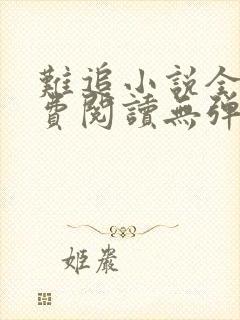 難追小說全
費閱讀無彈
姬嚴